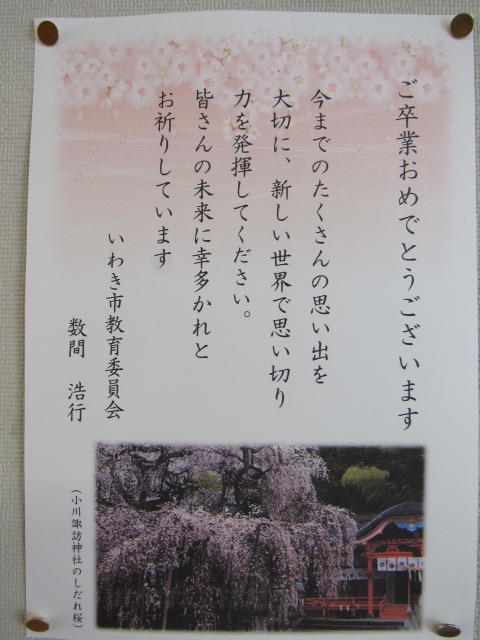 ご卒業おめでとうございます
今までのたくさんの思い出を
大切に、新しい世界で思い切り
力を発揮してください。
皆さんの未来に幸多かれと
お祈りしています
いわき市教育委員会
数間　浩行
（小川諏訪神社のしだれ桜）